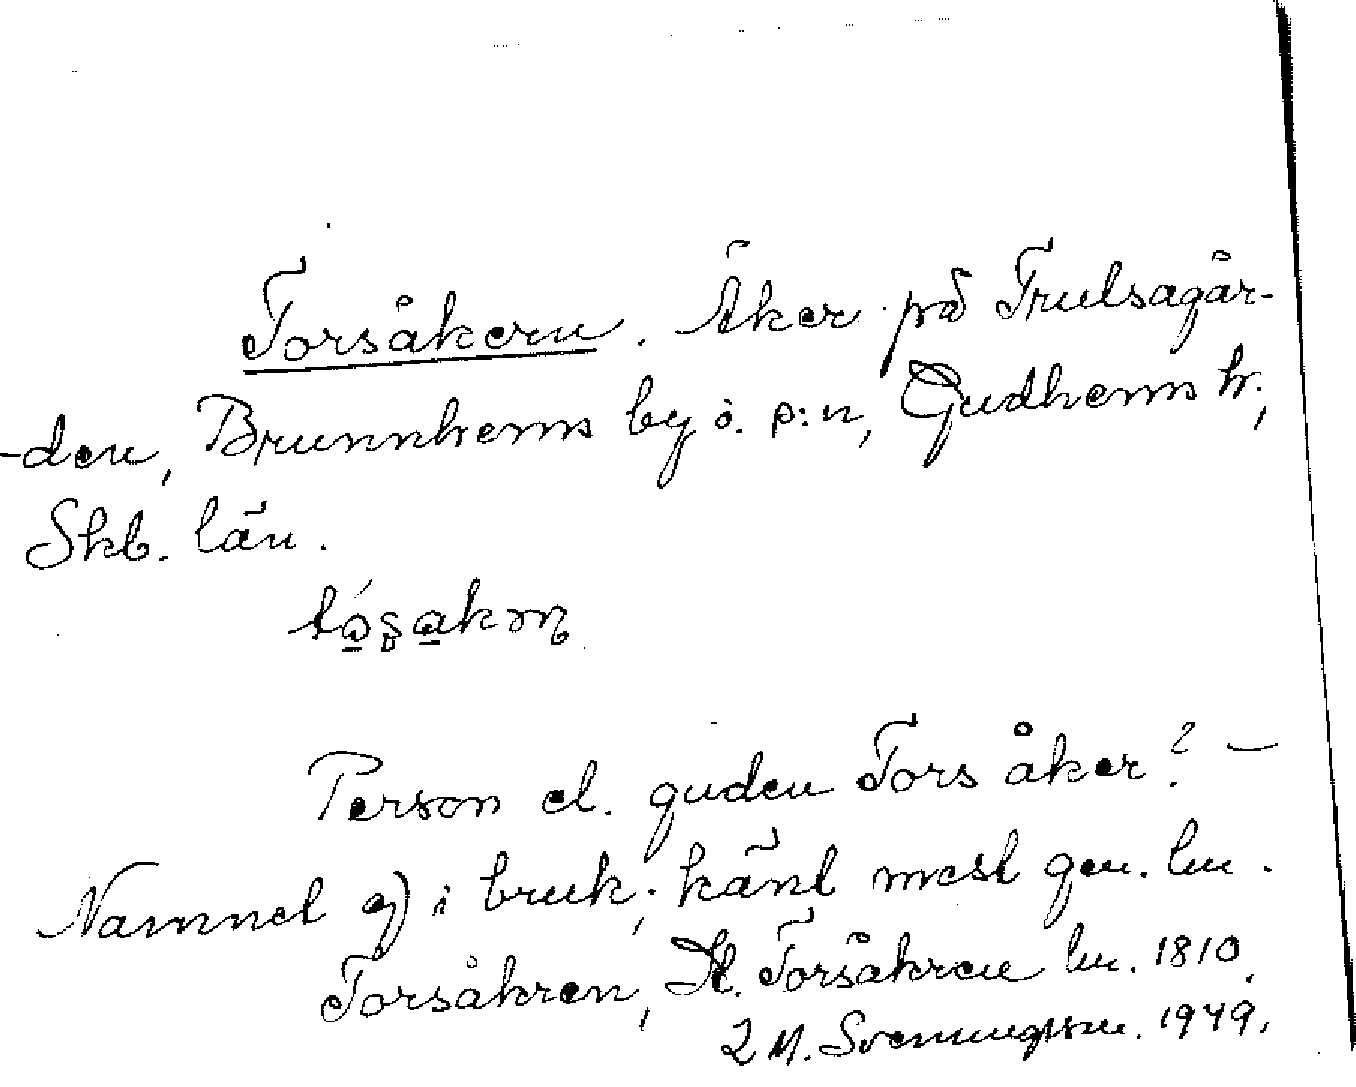 Torsåkern. Åker på Trulsagår-
-den, Brunnhems by o. s:n, Gudhems hr,
Skb. län.
Person el. guden Tors åker? —
Namnet ej i bruk; känt mest gen. lm.
Torsåkren, St. Torsåkren lm. 1810.
M. Svenungsson. 1949.